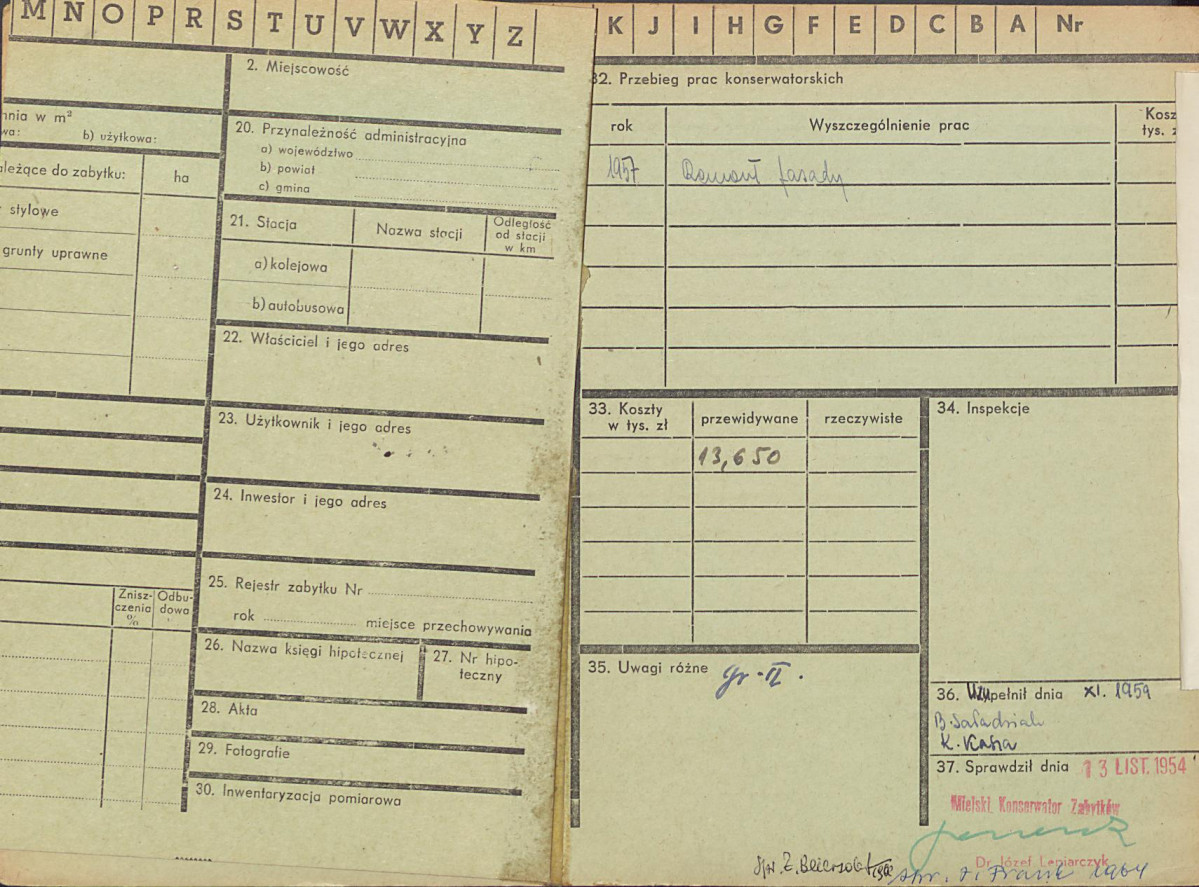 M N O P R S T U V W X Y Z
2. Miejscowość
nia w m²
wa: b) użytkowa:
20. Przynależność administracyjna
a) województwo
b) powiat
c) gmina
leżące do zabytku: ha
stylowe
grunty uprawne
21. Stacja Nazwa stacji Odległość od stacji w km
a) kolejowa
b) autobusowa
22. Właściciel i jego adres
23. Użytkownik i jego adres
24. Inwestor i jego adres
25. Rejestr zabytku Nr
rok miejsce przechowywania
Znisz-czenia % Odbu-dowa
26. Nazwa księgi hipotecznej
27. Nr hipo-teczny
28. Akta
29. Fotografie
30. Inwentaryzacja pomiarowa
K J I H G F E D C B A Nr
32. Przebieg prac konserwatorskich
rok Wyszczególnienie prac Kosz tys. z
1957 Remont fasady
33. Koszty w tys. zł przewidywane rzeczywiste
13,650
34. Inspekcje
35. Uwagi różne gr-II.
36. Uzupełnił dnia XI. 1959
37. Sprawdził dnia 13 LIST. 1954
Miejski Konserwator Zabytków
Dr Józef Lepiarczyk
1964